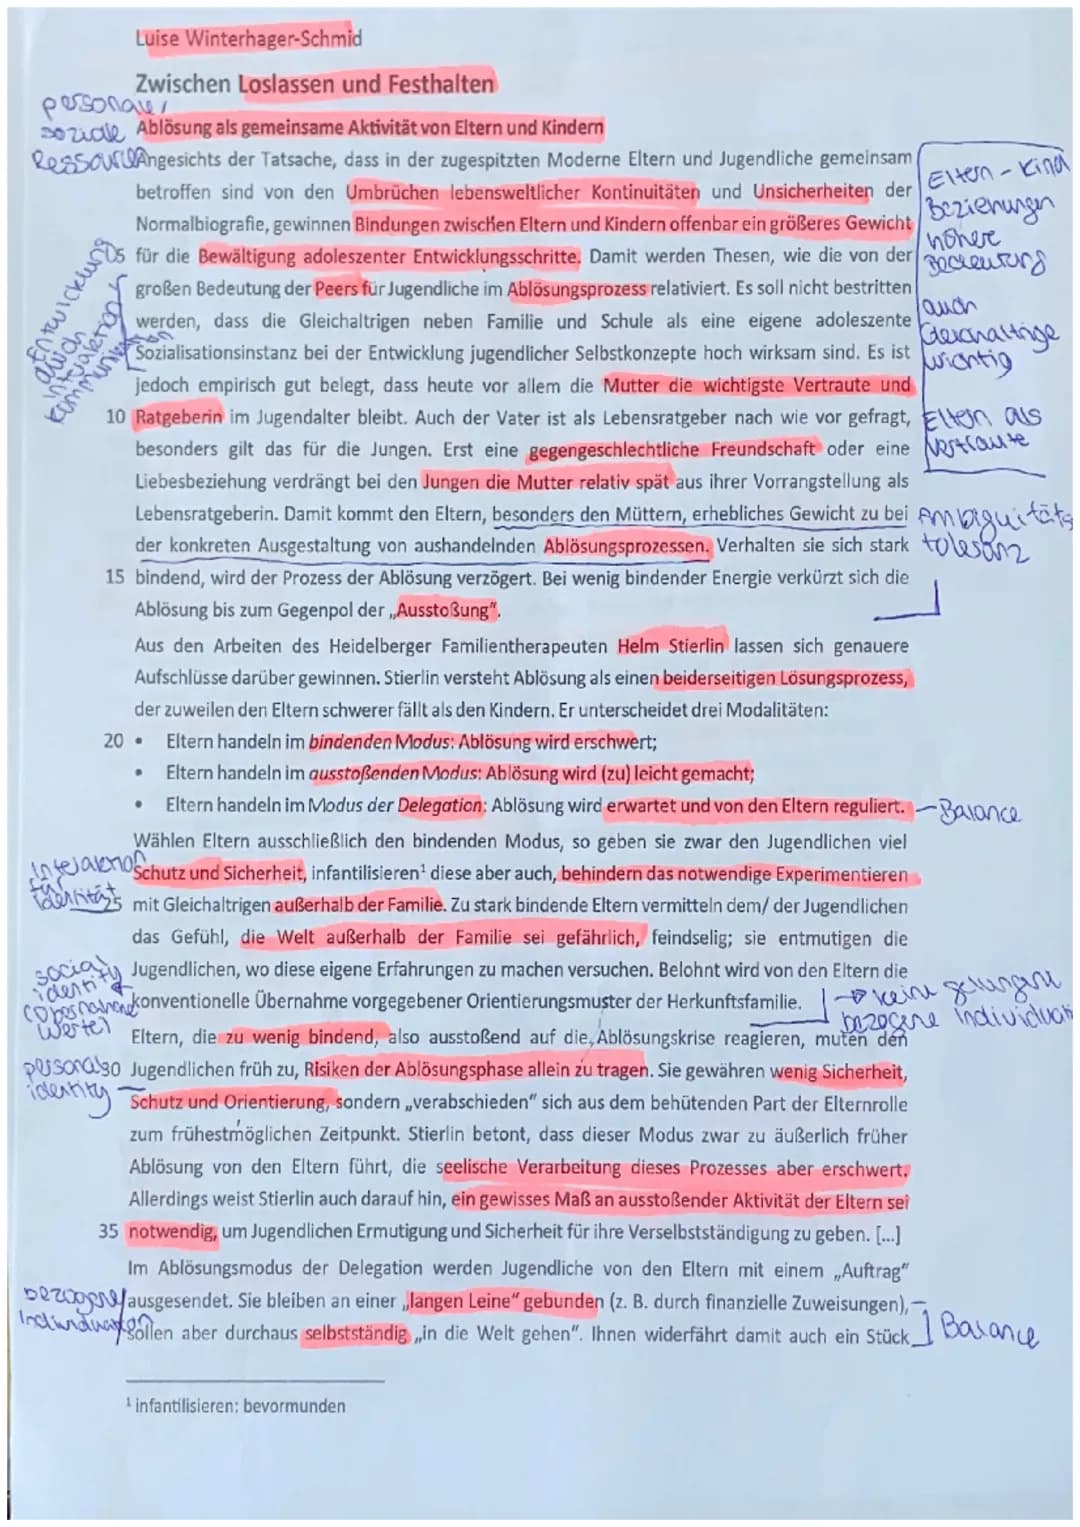 Luise Winterhager-Schmid
Zwischen Loslassen und Festhalten
personale,
soziale
Ressource
Ablösung als gemeinsame Aktivität von Eltern und Kindern
Angesichts der Tatsache, dass in der zugespitzten Moderne Eltern und Jugendliche gemeinsam
betroffen sind von den Umbrüchen lebensweltlicher Kontinuitäten und Unsicherheiten der
Normalbiografie, gewinnen Bindungen zwischen Eltern und Kindern offenbar ein größeres Gewicht
5 für die Bewältigung adoleszenter Entwicklungsschritte. Damit werden Thesen, wie die von der
großen Bedeutung der Peers für Jugendliche im Ablösungsprozess relativiert. Es soll nicht bestritten
werden, dass die Gleichaltrigen neben Familie und Schule als eine eigene adoleszente
Sozialisationsinstanz bei der Entwicklung jugendlicher Selbstkonzepte hoch wirksam sind. Es ist
jedoch empirisch gut belegt, dass heute vor allem die Mutter die wichtigste Vertraute und
10 Ratgeberin im Jugendalter bleibt. Auch der Vater ist als Lebensratgeber nach wie vor gefragt,
besonders gilt das für die Jungen. Erst eine gegengeschlechtliche Freundschaft oder eine
Liebesbeziehung verdrängt bei den Jungen die Mutter relativ spät aus ihrer Vorrangstellung als
Lebensratgeberin. Damit kommt den Eltern, besonders den Müttern, erhebliches Gewicht zu bei
der konkreten Ausgestaltung von aushandelnden Ablösungsprozessen. Verhalten sie sich stark
15 bindend, wird der Prozess der Ablösung verzögert. Bei wenig bindender Energie verkürzt sich die
Ablösung bis zum Gegenpol der „Ausstoßung".
Entwicklung
durch
Interaktion
Kommunikation
Eltern-Kind
Beziehungen
höhere
Bedeutung
auch
Gleichaltrige
wichtig
Eltern als
Vertraute
Ambiguitäts
toleranz
Aus den Arbeiten des Heidelberger Familientherapeuten Helm Stierlin lassen sich genauere
Aufschlüsse darüber gewinnen. Stierlin versteht Ablösung als einen beiderseitigen Lösungsprozess,
der zuweilen den Eltern schwerer fällt als den Kindern. Er unterscheidet drei Modalitäten:
20 • Eltern handeln im bindenden Modus: Ablösung wird erschwert;
• Eltern handeln im ausstoßenden Modus: Ablösung wird (zu) leicht gemacht;
• Eltern handeln im Modus der Delegation: Ablösung wird erwartet und von den Eltern reguliert. – Balance
Wählen Eltern ausschließlich den bindenden Modus, so geben sie zwar den Jugendlichen viel
Schutz und Sicherheit, infantilisieren¹ diese aber auch, behindern das notwendige Experimentieren
25 mit Gleichaltrigen außerhalb der Familie. Zu stark bindende Eltern vermitteln dem/ der Jugendlichen
das Gefühl, die Welt außerhalb der Familie sei gefährlich, feindselig; sie entmutigen die
Jugendlichen, wo diese eigene Erfahrungen zu machen versuchen. Belohnt wird von den Eltern die
konventionelle Übernahme vorgegebener Orientierungsmuster der Herkunftsfamilie.
Interaktion
für
Identität
social
identity
(Übernahme
Werte)
→ keine gelungene
bezogene Individuati
Eltern, die zu wenig bindend, also ausstoßend auf die Ablösungskrise reagieren, muten den
30 Jugendlichen früh zu, Risiken der Ablösungsphase allein zu tragen. Sie gewähren wenig Sicherheit,
Schutz und Orientierung, sondern „verabschieden" sich aus dem behütenden Part der Elternrolle
zum frühestmöglichen Zeitpunkt. Stierlin betont, dass dieser Modus zwar zu äußerlich früher
Ablösung von den Eltern führt, die seelische Verarbeitung dieses Prozesses aber erschwert.
Allerdings weist Stierlin auch darauf hin, ein gewisses Maß an ausstoßender Aktivität der Eltern sei
35 notwendig, um Jugendlichen Ermutigung und Sicherheit für ihre Verselbstständigung zu geben. [...]
personal
identity
Im Ablösungsmodus der Delegation werden Jugendliche von den Eltern mit einem „Auftrag"
ausgesendet. Sie bleiben an einer „langen Leine" gebunden (z. B. durch finanzielle Zuweisungen),
sollen aber durchaus selbstständig „in die Welt gehen". Ihnen widerfährt damit auch ein Stück
bezogene
Individuation
Balance
¹ infantilisieren: bevormunden